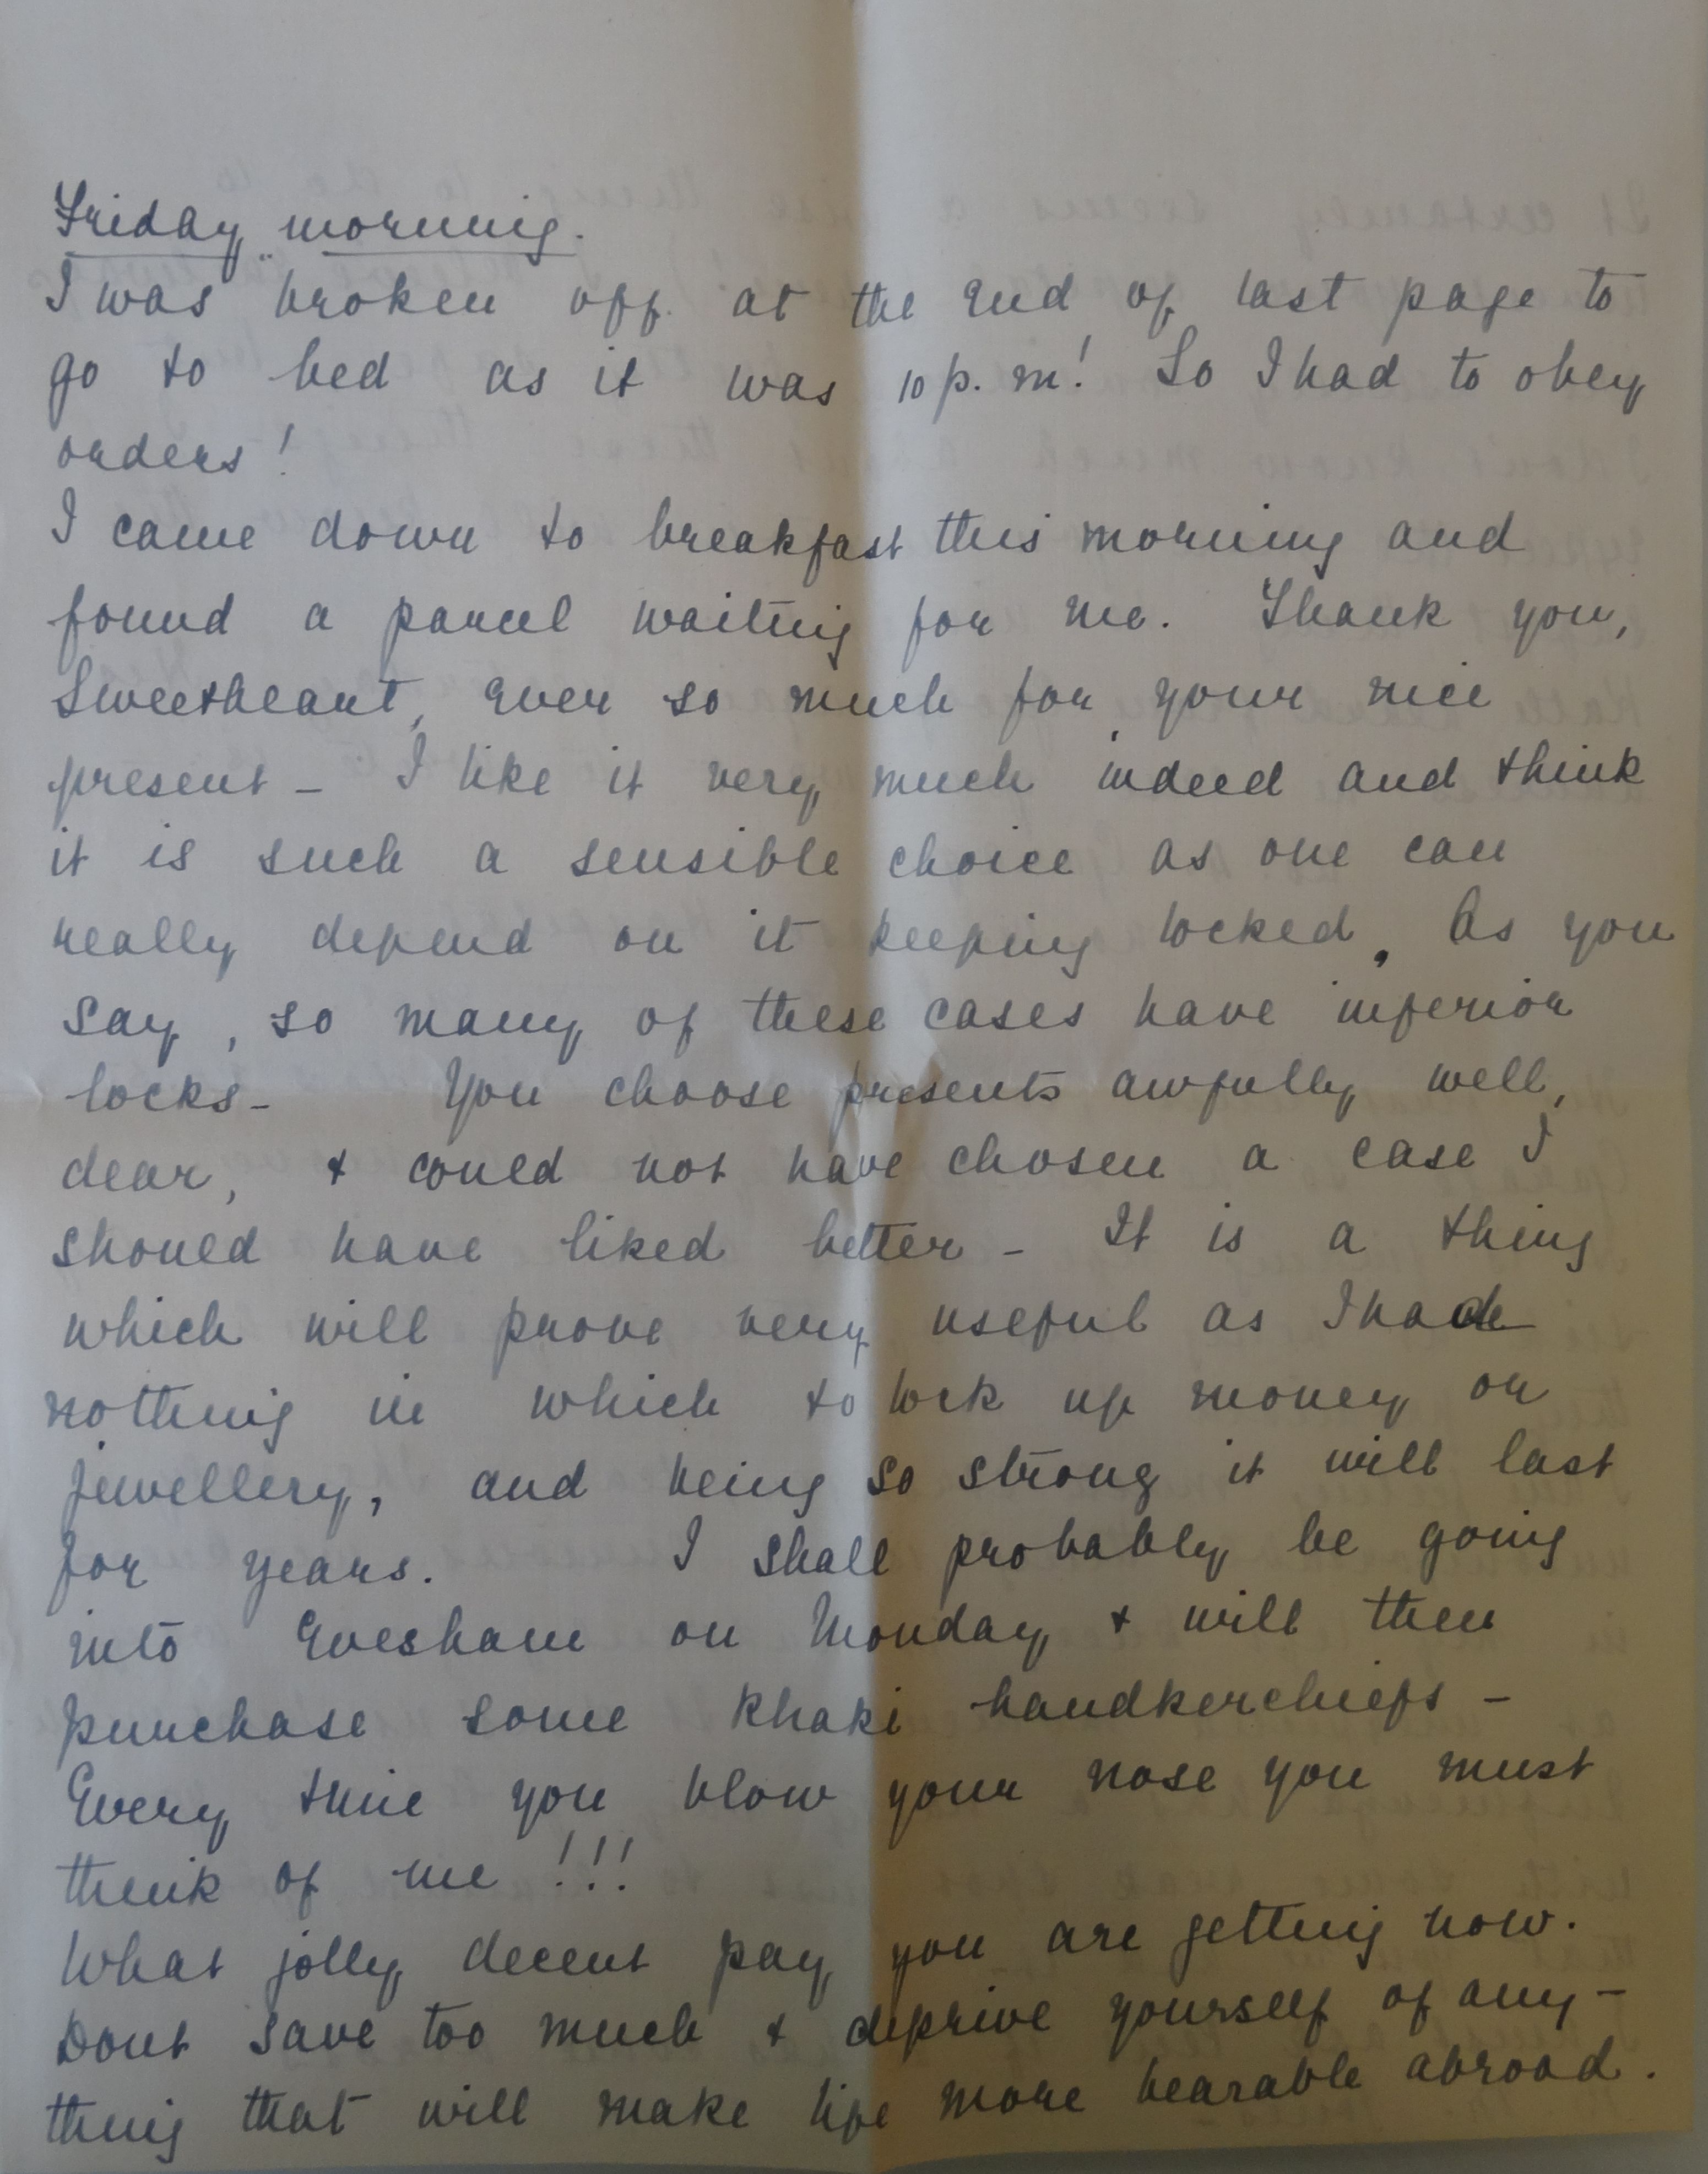 Friday morning.
I was broken off at the end of last page to
go to bed as it was 10 p.m! So I had to obey
orders!
I came down to breakfast this morning and
found a parcel waiting for me. Thank you,
Sweetheart, ever so much for your nice
present – I like it very much indeed and think
it is such a sensible choice as one can
really depend on it keeping locked. As you
say, so many of these cases have inferior
locks – You choose presents awfully well,
dear, & could not have chosen a case I
should have liked better – It is a thing
which will prove very useful as I had
nothing in which to lock up money or
jewellery, and being so strong it will last
for years. I shall probably be going
into Evesham on Monday & will then
purchase some khaki handkerchiefs –
Every time you blow your nose you must
think of me !!!
What jolly decent pay you are getting now.
Dont save too much & deprive yourself of any-
thing that will make life more bearable abroad.